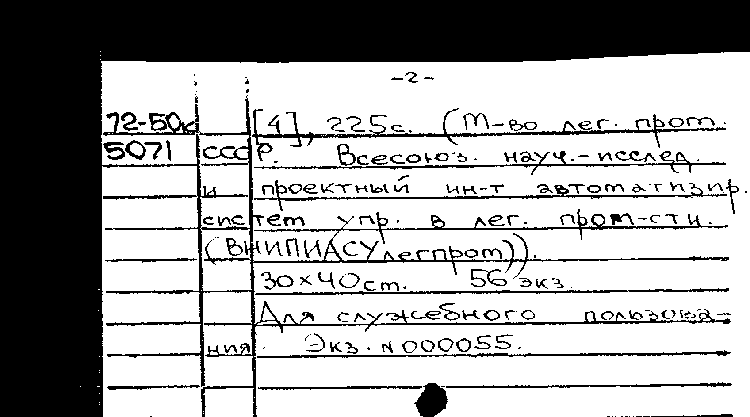 -2-
72-50к [4], 225с. (М-во лег. пром.
5071 СССР. Всесоюз. науч.-исслед.
и проектный ин-т автоматизир.
систем упр. в лег. пром-сти.
(ВНИПИАСУлегпром)).
30×40см. 56 экз.
Для служебного пользова-
ния. Экз. N000055.